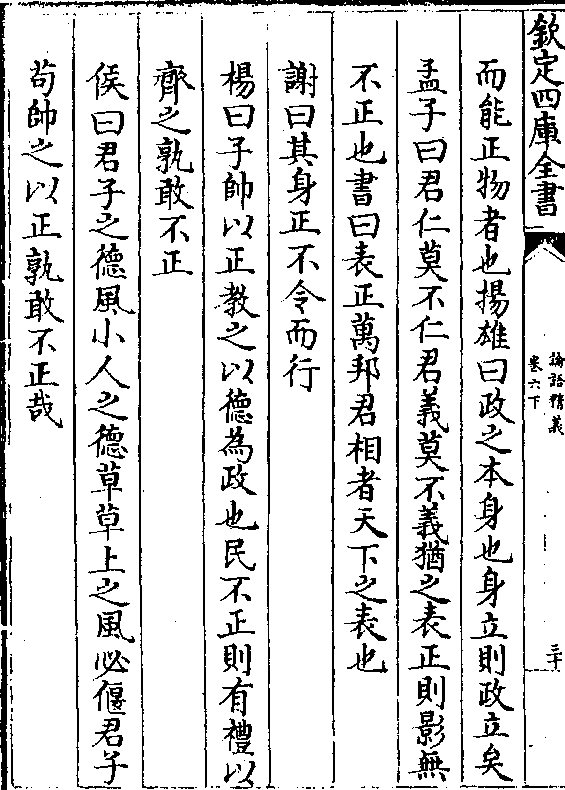 欽定四庫全書
論語精義
卷六下
三十
而能正物者也揚雄曰政之本身也身立則政立矣
孟子曰君仁莫不仁君義莫不義猶之表正則影無
不正也書曰表正萬邦君相者天下之表也
謝曰其身正不令而行
楊曰子帥以正教之以德為政也民不正則有禮以
齊之孰敢不正
侯曰君子之德風小人之德草草上之風必偃君子
苟帥之以正孰敢不正哉